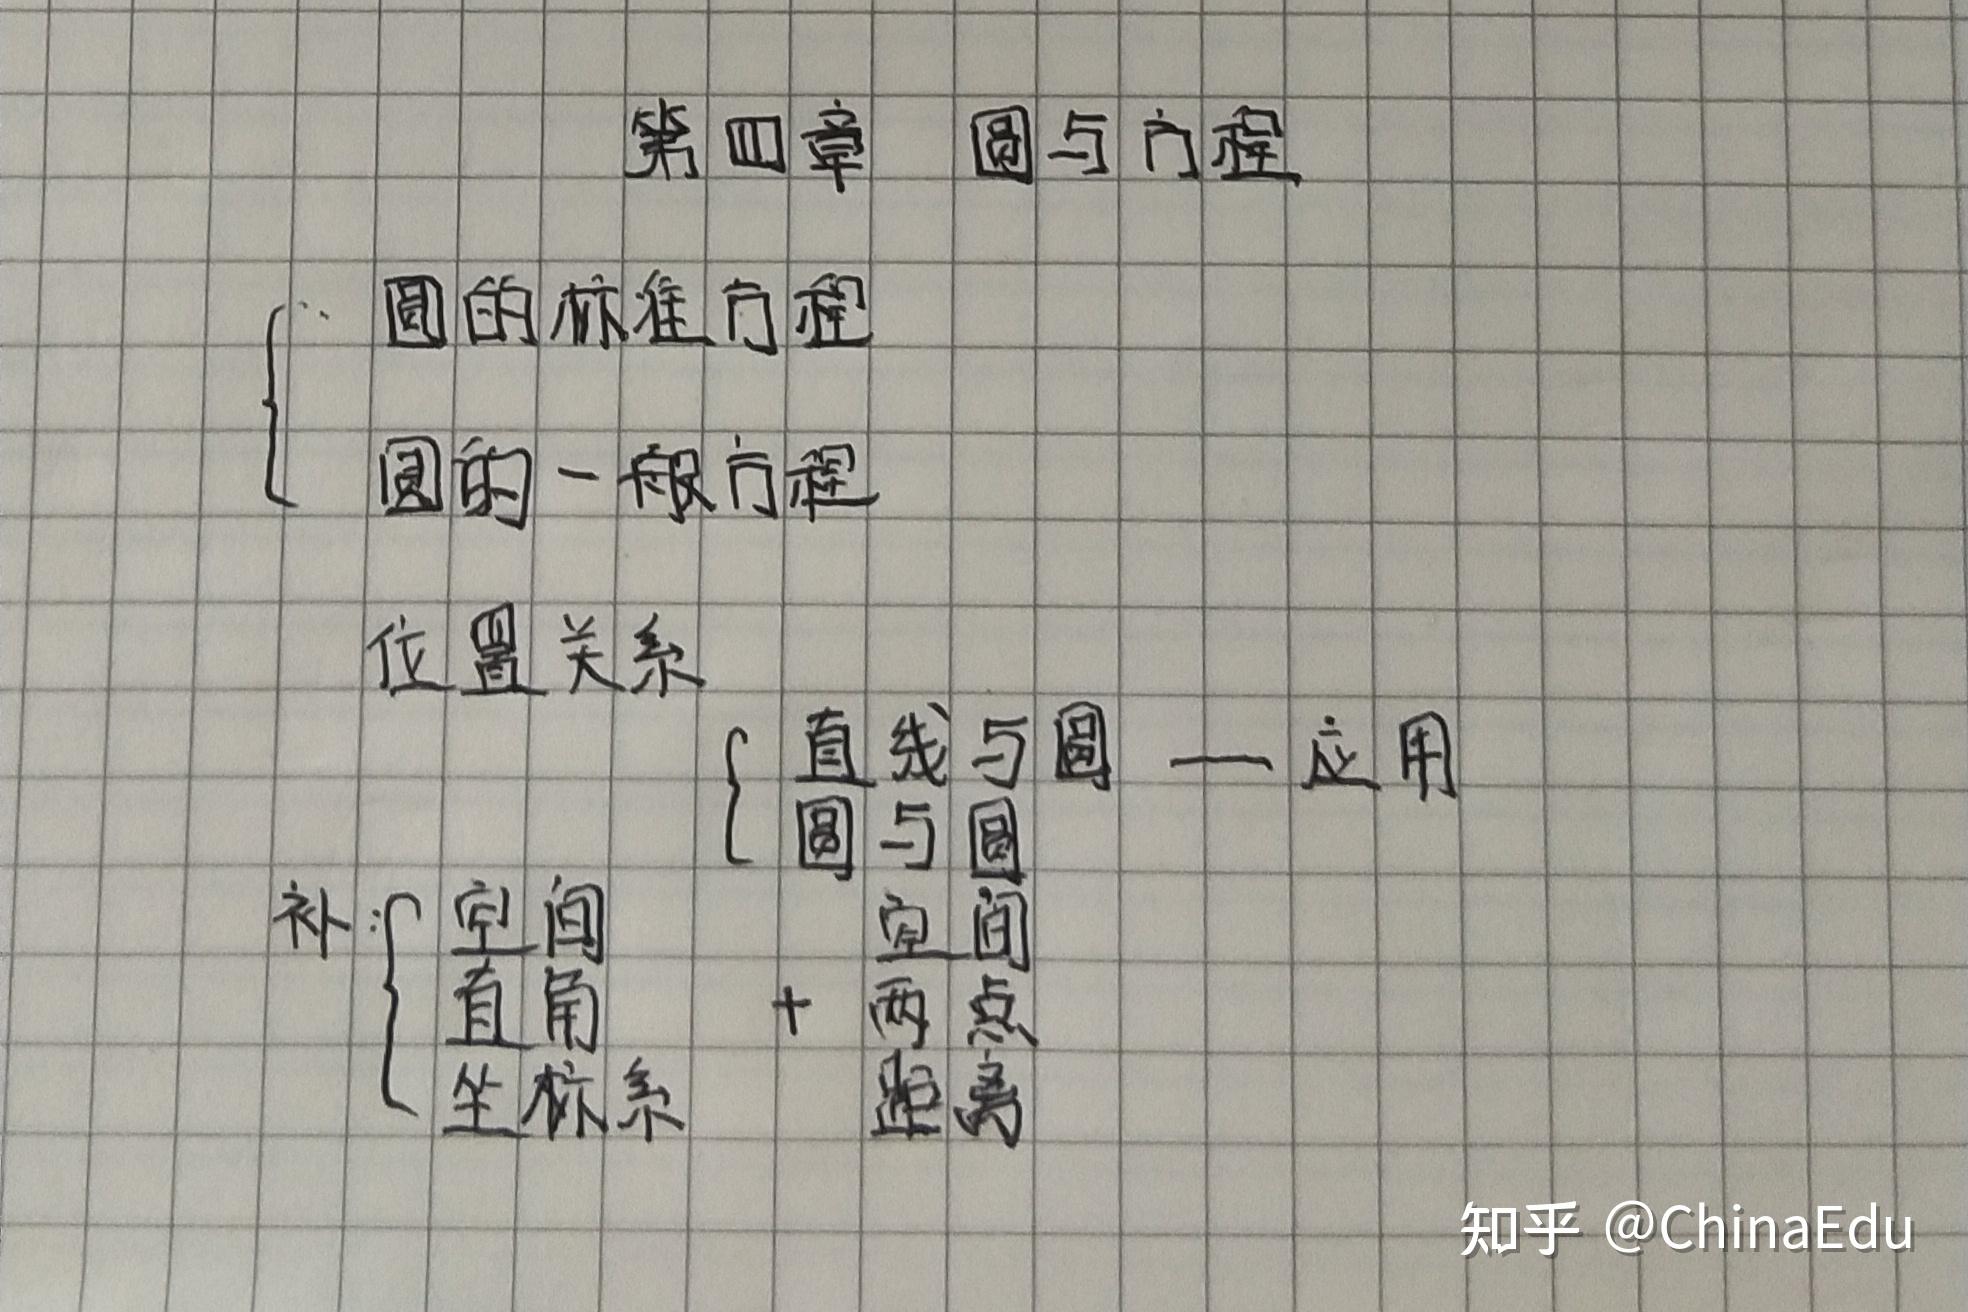 第四章 圆与方程
圆的标准方程
圆的一般方程
位置关系
直线与圆 — 应用
圆与圆
补: 空间 空间
直角 + 两点
坐标系 距离
知乎 @ChinaEdu